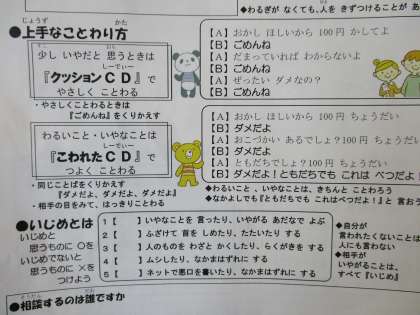 ◆わるぎが なくても、人を きずつけることが あ
●上手なことわり方
じょうず
かた
少し いやだと 思うときは
しーでぃー
『クッションＣＤ』で
やさしく ことわる
・やさしくことわるときは
『ごめんね』をくりかえす
【A】おかし ほしいから 100円 かしてよ
【B】ごめんね
【A】だまっていれば わからないよ
【B】ごめんね
【A】ぜったい ダメなの？
【B】ごめんね
わるいこと・いやなことは
しーでぃー
『こわれたＣＤ』で
つよく ことわる
・同じことばをくりかえす
『ダメだよ、ダメだよ、ダメだよ』
・相手の目をみて、はっきりことわる
【A】おかし ほしいから 100円 ちょうだい
【B】ダメだよ
【A】おこづかい あるでしょ？100円 ちょうだい
【B】ダメだよ
【A】ともだちでしょ？100円 ちょうだい
【B】ダメだよ！ともだちでも これは べつだよ！
◆わるいこと 、いやなことは、きちんと ことわろう
◆なかよしでも『ともだちでも これはべつだよ！』と 言おう
●いじめとは
いじめと
思うものに ○を
いじめでないと
思うものに ×を
つけよう
1【　　】いやなことを 言ったり、いやがる あだなで よぶ
2【　　】ふざけて 首を しめたり、たたいたり する
3【　　】人のものを わざと かくしたり、らくがきを する
4【　　】ムシしたり、なかまはずれに する
5【　　】ネットで悪口を書いたり、なかまはずれに する
◆自分が
言われたくないことは
人にも言わない
◆相手が
いやがることは、
すべて『いじめ』
●相談するのは誰ですか